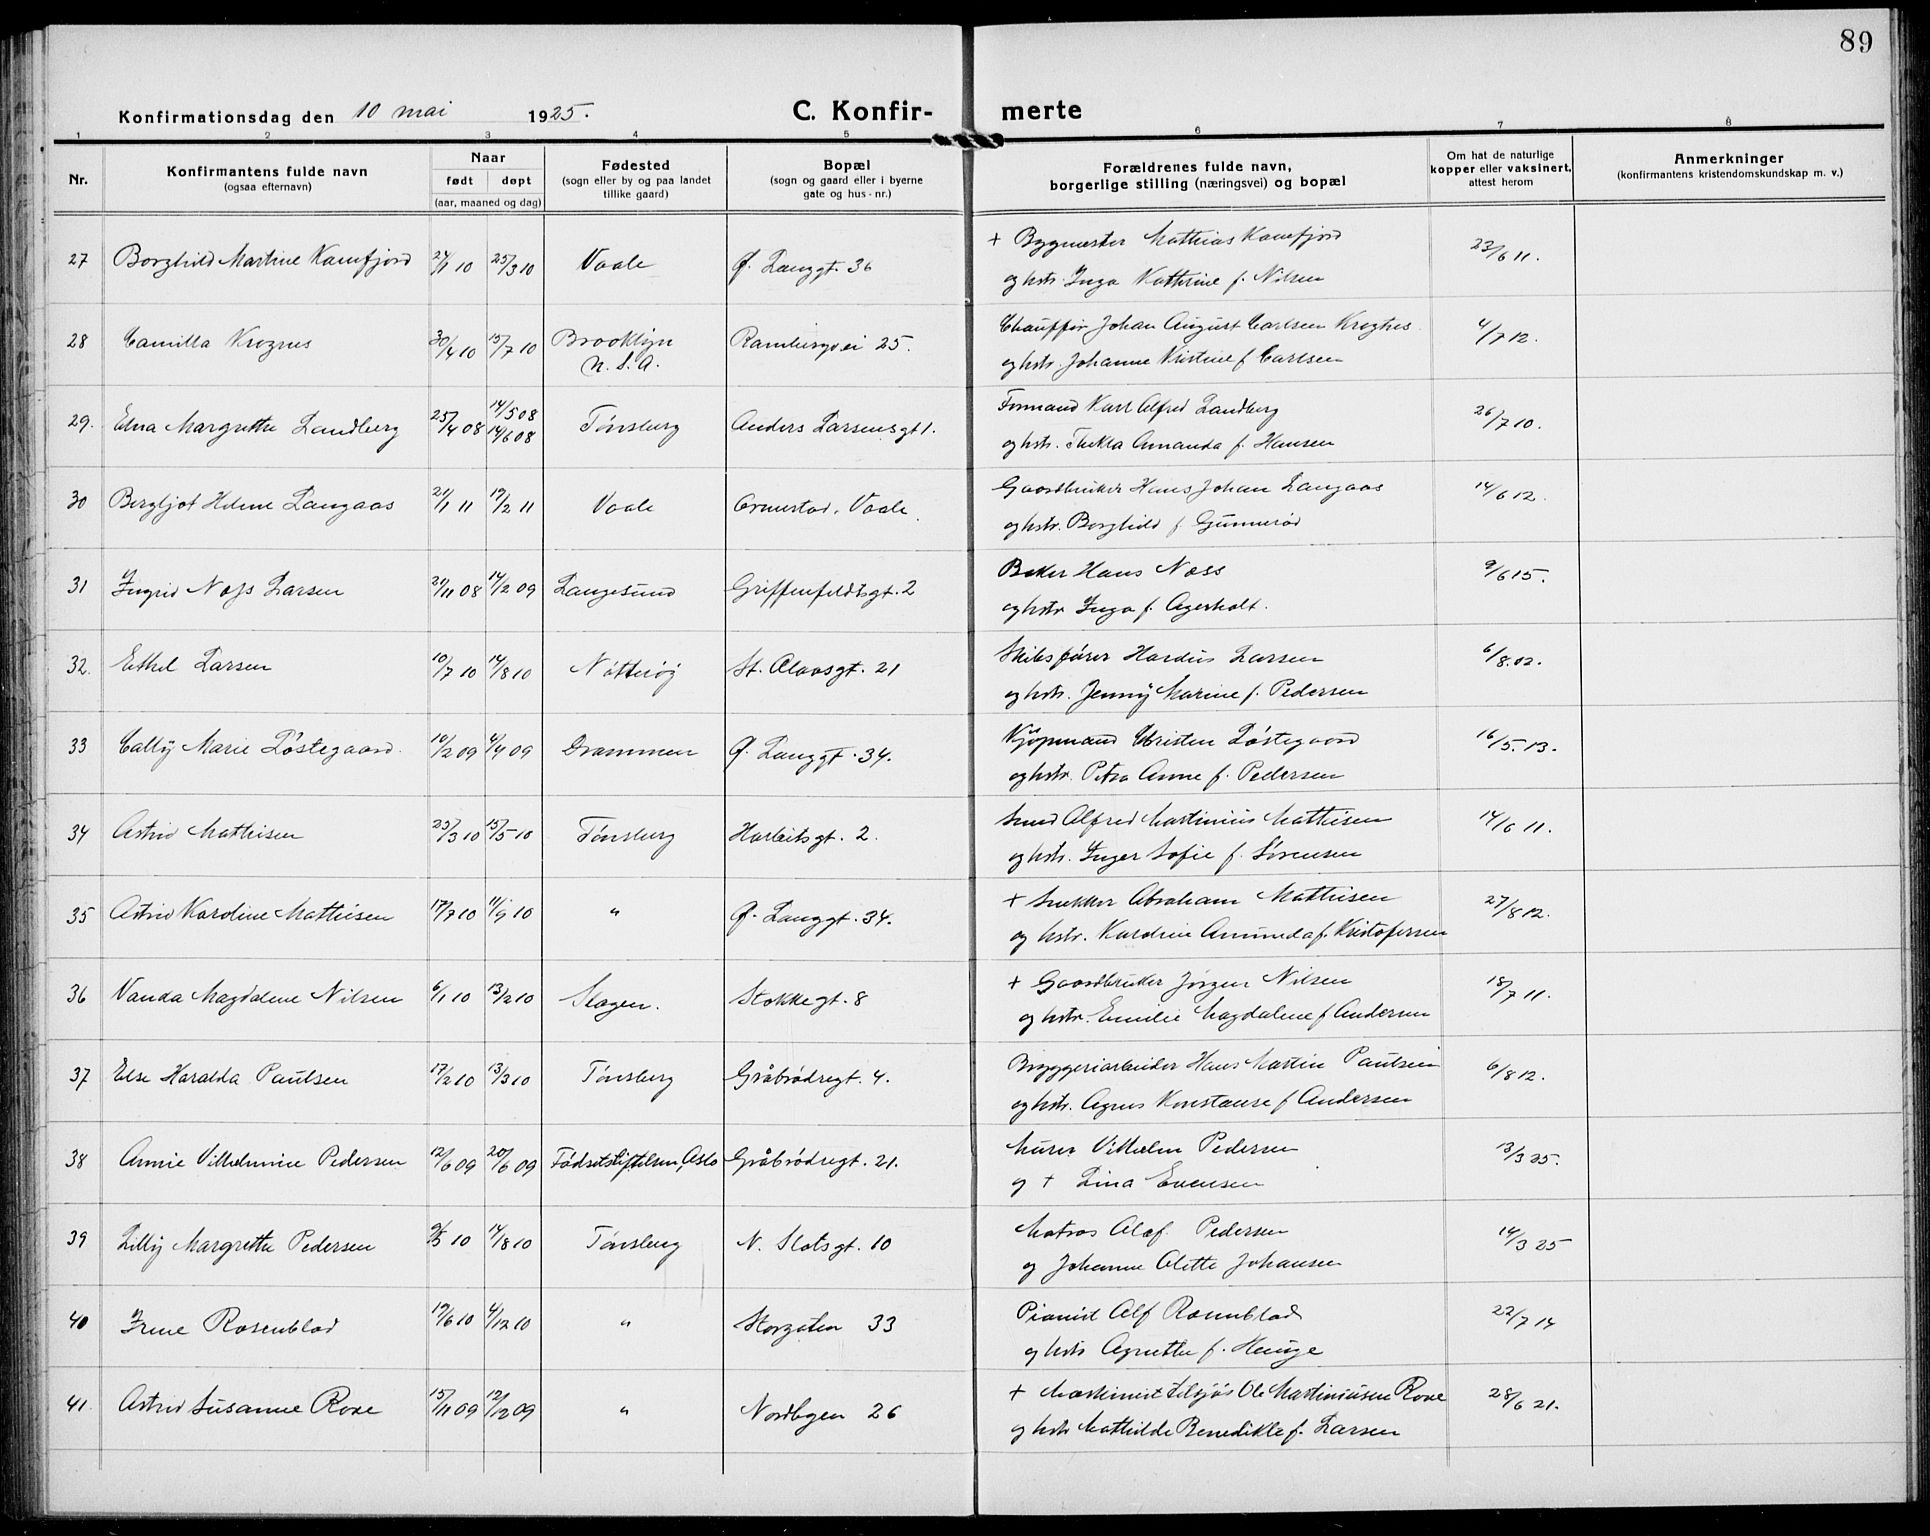 89
Konfirmationsdag den 10 mai 1925.
C. Konfirmerte
1 2 3 4 5 6 7 8
Nr.
Konfirmantens fulde navn
(ogsaa efternavn)
Naar
født døpt
(aar, maaned og dag)
Fødested
(sogn eller by og paa landet
tillike gaard)
Bopæl
(sogn og gaard eller i byerne
gate og hus-nr.)
Forældrenes fulde navn,
borgerlige stilling (næringsvei) og bopæl
Om hat de naturlige
kopper eller vaksinert,
attest herom
Anmerkninger
(konfirmantens kristendomskundskap m. v.)
27 Borghild Martine Kamfjord 24/1 10 25/3 10 Vaale Ø. Langgt. 36 + Bygmester Mathias Kamfjord 23/6 11.
og hstr. Inga Kathrine f. Nilsen
28 Camilla Krognes 30/4 10 15/7 10 Brooklyn Rambergvei 25. Chauffør Johan August Carlsen Krognes 4/7 12.
N. S. A. og hstr. Johanne Kristine f Carlsen
29. Edna Margrethe Landberg 25/4 08 14/5 08 Tønsberg Anders Larsensgt 1. Formand Karl Alfred Landberg 26/7 10.
14/6 08 og hstr. Thekla Amanda f. Hansen
30 Bergljot Helene Langaas 21/1 11 19/2 11 Vaale Ormestad, Vaale. Gaardbruker Hans Johan Langaas 14/6 12.
og hstr. Borghild f Gunnerød
31 Ingrid Næss Larsen 21/11 08 14/2 09 Langesund Griffenfeldtsgt. 2 Baker Hans Næss 9/6 15.
og hstr Inga f. Agerholt.
32. Ethel Larsen 10/7 10 14/8 10 Nøtterøy St. Olavsgt. 21 Skibsfører Hardus Larsen 6/8.02.
og hstr. Jenny Marine f. Pedersen
33 Cally Marie Løstegaard. 10/2 09 4/4 09 Drammen Ø. Langgt. 34. Kjøpmand Kristen Løstegaard 16/5.13.
og hstr. Petra Anne f. Pedersen
34 Astrid Mathisen 23/3 10 15/5 10 Tønsberg Harleitsgt. 2. Smed Alfred Martinius Mathisen 14/6 11.
og hstr. Inger Sofie f. Sørensen
35 Astrid Karoline Mathisen 17/7 10 11/9 10 " Ø. Langgt. 34. + Snekker Abraham Mathisen 27/8 12.
og hstr. Amunda f. Kristofersen
36 Vanda Magdalene Nilsen 6/1 10 13/2 10 Slagen. Stokkegt. 8 + Gaardbruker Jørgen Nilsen 18/7 11.
og hstr. Emilie Magdalene f Andersen
37 Else Haralda Paulsen 17/2 10 13/3 10 Tønsberg Gråbrødregt. 4. Bryggeriarbeider Hans Martin Paulsen 6/8 12.
og hstr. Agnes Konstanse f Andersen
38 Annie Vilhelmine Pedersen 12/6 09 20/6 09 Fødselsstiftelsen, Oslo Gråbrødregt. 21. Murer Vilhelm Pedersen 13/3 25.
og + Lina Evensen
39 Lilly Margrethe Pedersen 9/5 10 14/8 10 Tønsberg N. Slotsgt. 10 Matros Olaf Pedersen 14/3 25
og Johanne Olette Johansen
40 Irene Rosenblad 19/6 10 4/12 10 " Storgaten 33 Pianist Alf Rosenblad 22/7 14
og hstr Agnethe f. Hauge
41. Astrid Susanne Rove 15/11 09 12/12 09 " Nordbyen 26 + Maskinist tilsjøs Ole Martiniusen Rove 28/6 21.
og hstr Mathilde Benedikte f. Larsen